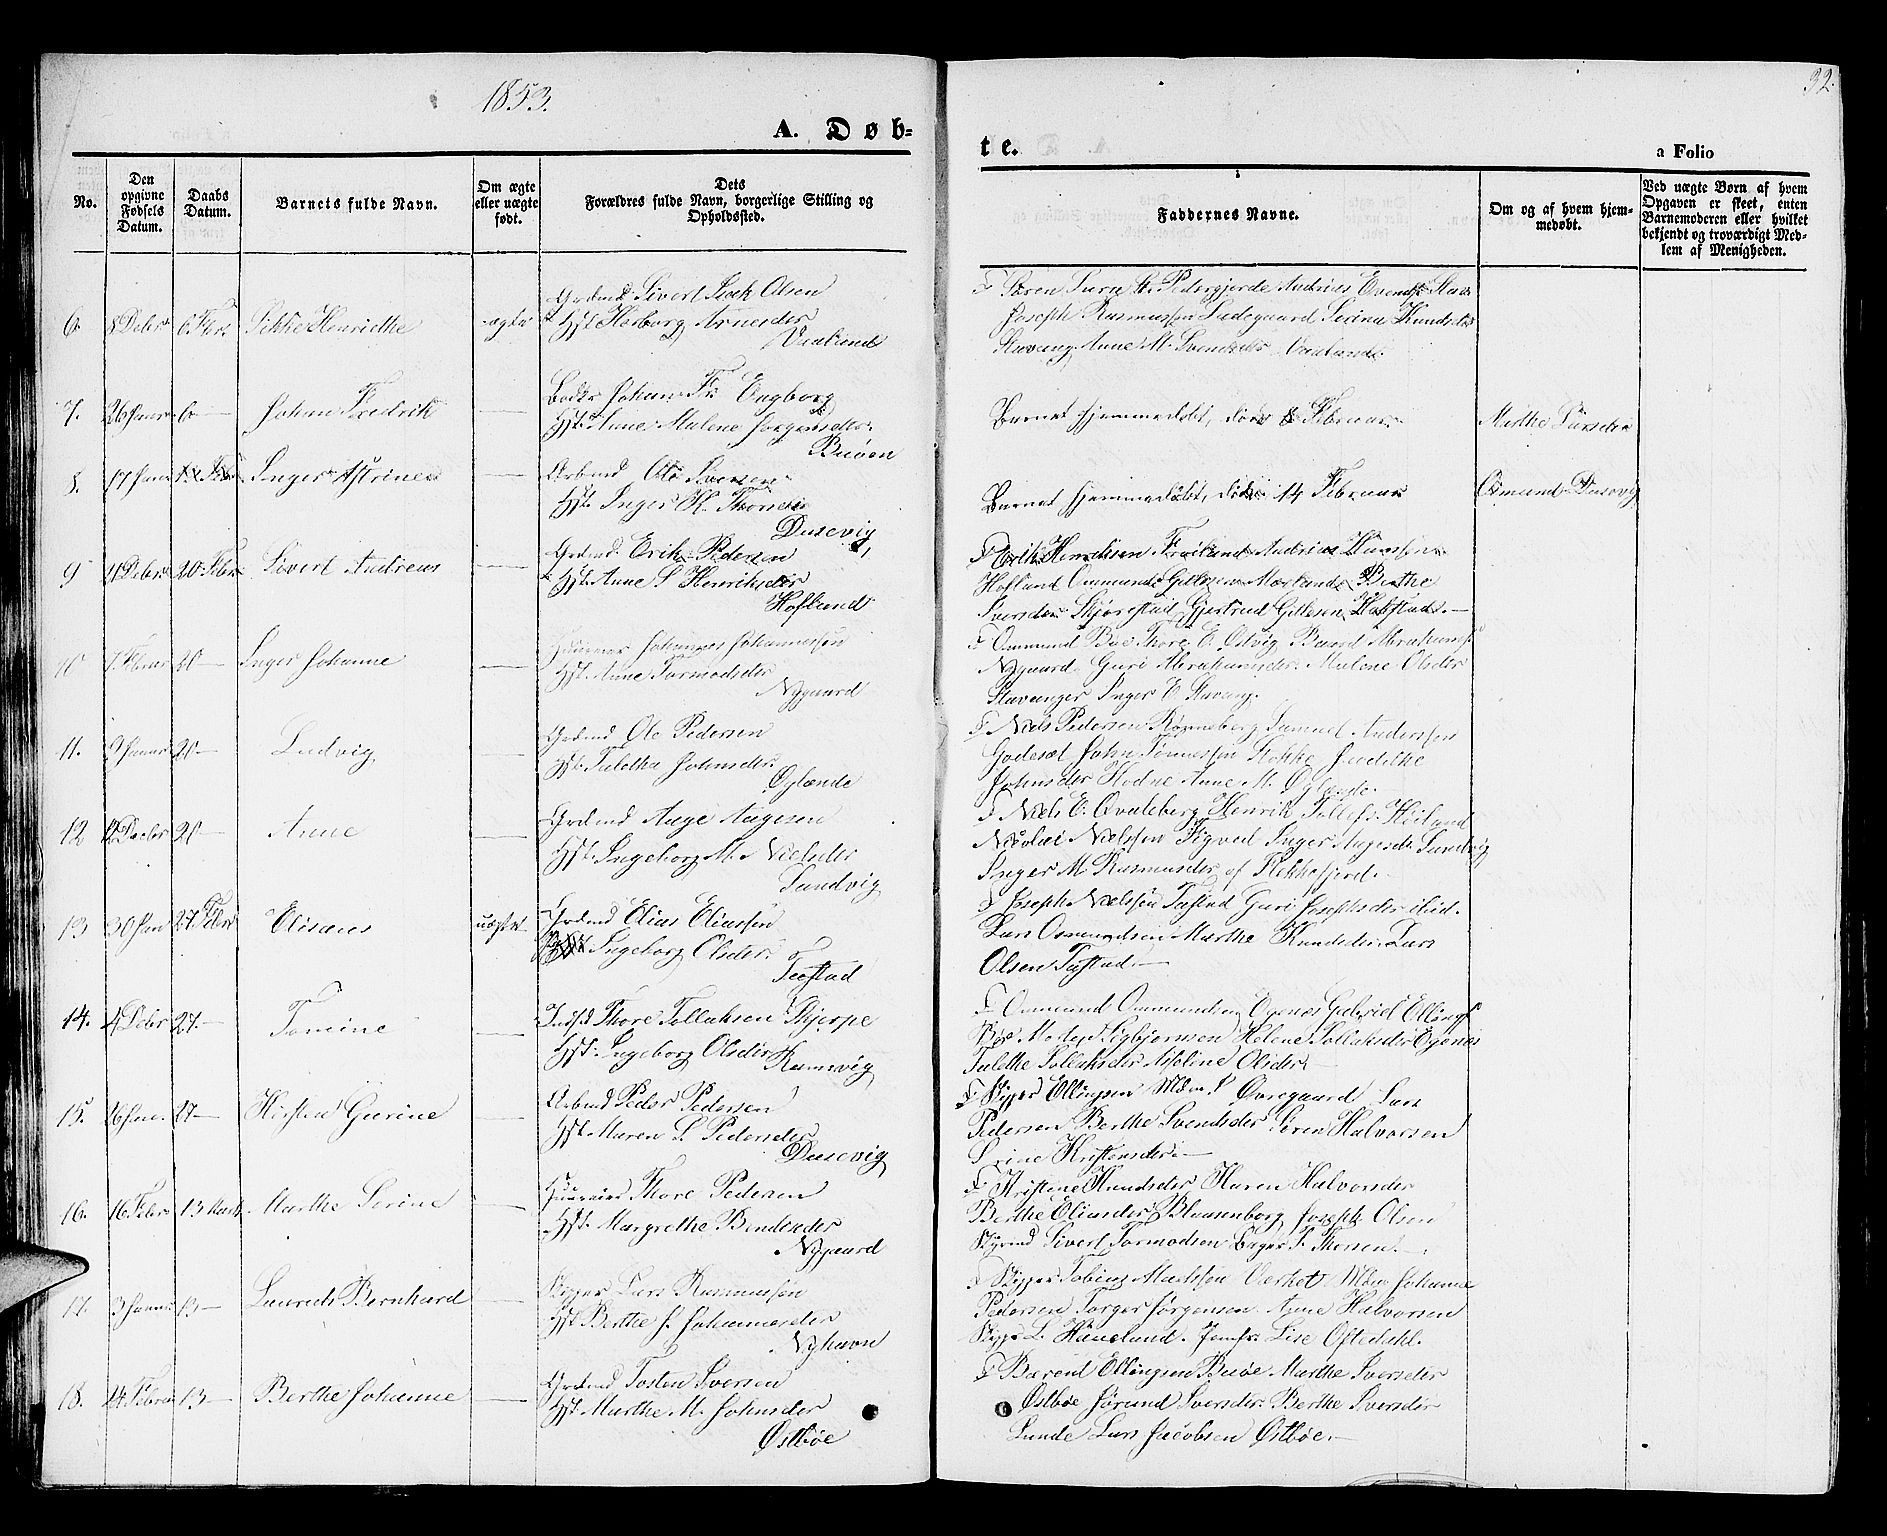 1853.
32.
A. Døb-
te.
a Folio
No.
Den opgivne Fødsels Datum.
Daabs Datum.
Barnets fulde Navn.
Om ægte eller uægte født.
Dets Forældres fulde Navn, borgerlige Stilling og Opholdssted.
Faddernes Navne.
Om og af hvem hjem-
medøbt.
Ved uægte Børn af hvem
Opgaven er skeet, enten
Barnemoderen eller hvilket
bekjendt og troværdigt Med-
lem af Menigheden.
6. 8 Debr 6 Febr. Sikke Henriethe ægte
Grdmd. Sivert Isak Olsen
Hst. Hæborg Arnesder
Vaaland
F Søren Pedergjerde Andreas
Joseph Rasmussen Ladegaard Serina Knudsder
Stavang. Anne M. Svendsdr Vaaland.
7. 26 Janr 6 — Johan Fredrik —
Bødker Johan Fr Engborg
Hst. Anne Malene Jørgensder
Buøen
Barnet hjemmedøbt, døde 8 Februar
Marthe
8. 17 Janr Inger Astrinea —
Arbmd Ole Iversen
Hst. Inger H. Thorsder
Dusevig
Barnet hjemmedøbt, døde 14 Februar
Osmund Dusevig
9 11 Debr 20 Febr Sivert Andreas —
Grdmd. Erik Pedersen
Hst. Anne S Henriksder
Hofland
F Erik Henriksen Andreas Hansen
Hofland Ommund Gitlesen Mæland Berthe
Iversder Skjørestad Gjertrud Gitlesen
10 7 Febr 20 — Inger Johanne —
Huusmd Johannes Johannessen
Hst. Anne Tormodsder
Nygaard
F Ommund Bøe Thore E. Ousvig Baard Abrahams
Nygaard Guri Abrahamsder Malene Olsder
Stavanger Inger E. Stavang.
11. 9 Janr 20 — Ludvig —
Grdmd Ole Pedersen
Hst. Taletha Johnsder
Oglænde
F Niels Pedersen Rønneberg Samuel Anderssen
Godeset John Tønnessen Stokke Judithe
Johnsder Hodne Anne M. Oglænde.
12 12 Decbr 20 — Anne —
Grdmd Aage Aagesen
Hst. Ingeborg M. Nielsder
Sandvig
F Niels E. Qvaleberg Henrik Tollefs. Høiland
Nicolai Nielssen Sigved Inger Aagesdr Sandvig
Inger M Rasmusder af Flekkefjord.
13 30 Jan 27 Febr Elisæus uægte
Grdmd Elias Eliassen
Ingeborg Olsder
Tastad
F Joseph Nielssen Tastad Guri Josephsder ibid.
Lars Osmundsen Marthe Knudsder Lars
Olsen Tastad. —
14. 4 Debr 27. — Tomine —
Indsd Thore Tollaksen Skjerpe
Hst. Ingeborg Olsder Ramsvig
F Ommund Ommundsen Egenes Gabriel Ellings
Bøe Mads Sigbjørnsen Helene Tollaksder Egenes
Talethe Tollaksder Asseline Olsder. —
15. 26 Jan. 27 — Kirsten Gurine —
Arbmd Peder Pedersen
Hst. Maren S. Pedersder
Dusevig
F Skipper Ellingsen Mdm Øvregaard Lars
Pedersen Berthe Svendsder Søren Halvorsen
Serine Kristensder. —
16. 16 Febr 13 Marts Marthe Serine —
Huusmd Thore Pedersen
Hst. Margrethe Bendixder
Nygaard
F Kristine Knudsder Karen Halvorsder
Berthe Eliasder Blaasenborg Joseph Olsen
Sivert Tormodsen Birger T. Thorsen. —
17. 3 Janr 13 — Laurids Bernhard —
Skipper Lars Rasmussen
Hst Berthe J. Johannesder
Nyhavn
F Skipper Tobias Madssen Værket Mdm Johanne
Pedersen Torger Jørgensen Anne Halvorsen
Skippr L. Haaeland. Jomfr. Lise Oftedahl.
18. 24 Febr 13 — Berthe Johanne —
Grdmd Tosten Iversen
Hst. Marthe M. Johnsder
Østbøe
F Bærend Ellingsen Buøe Marthe Iversder
Østbøe Jørund Iversder Berthe Iversder
Lunde Lars Jacobsen Østbøe. —